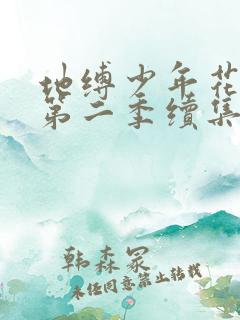 地缚少年花
第二季续集
韩森冢
未经同意禁止转载